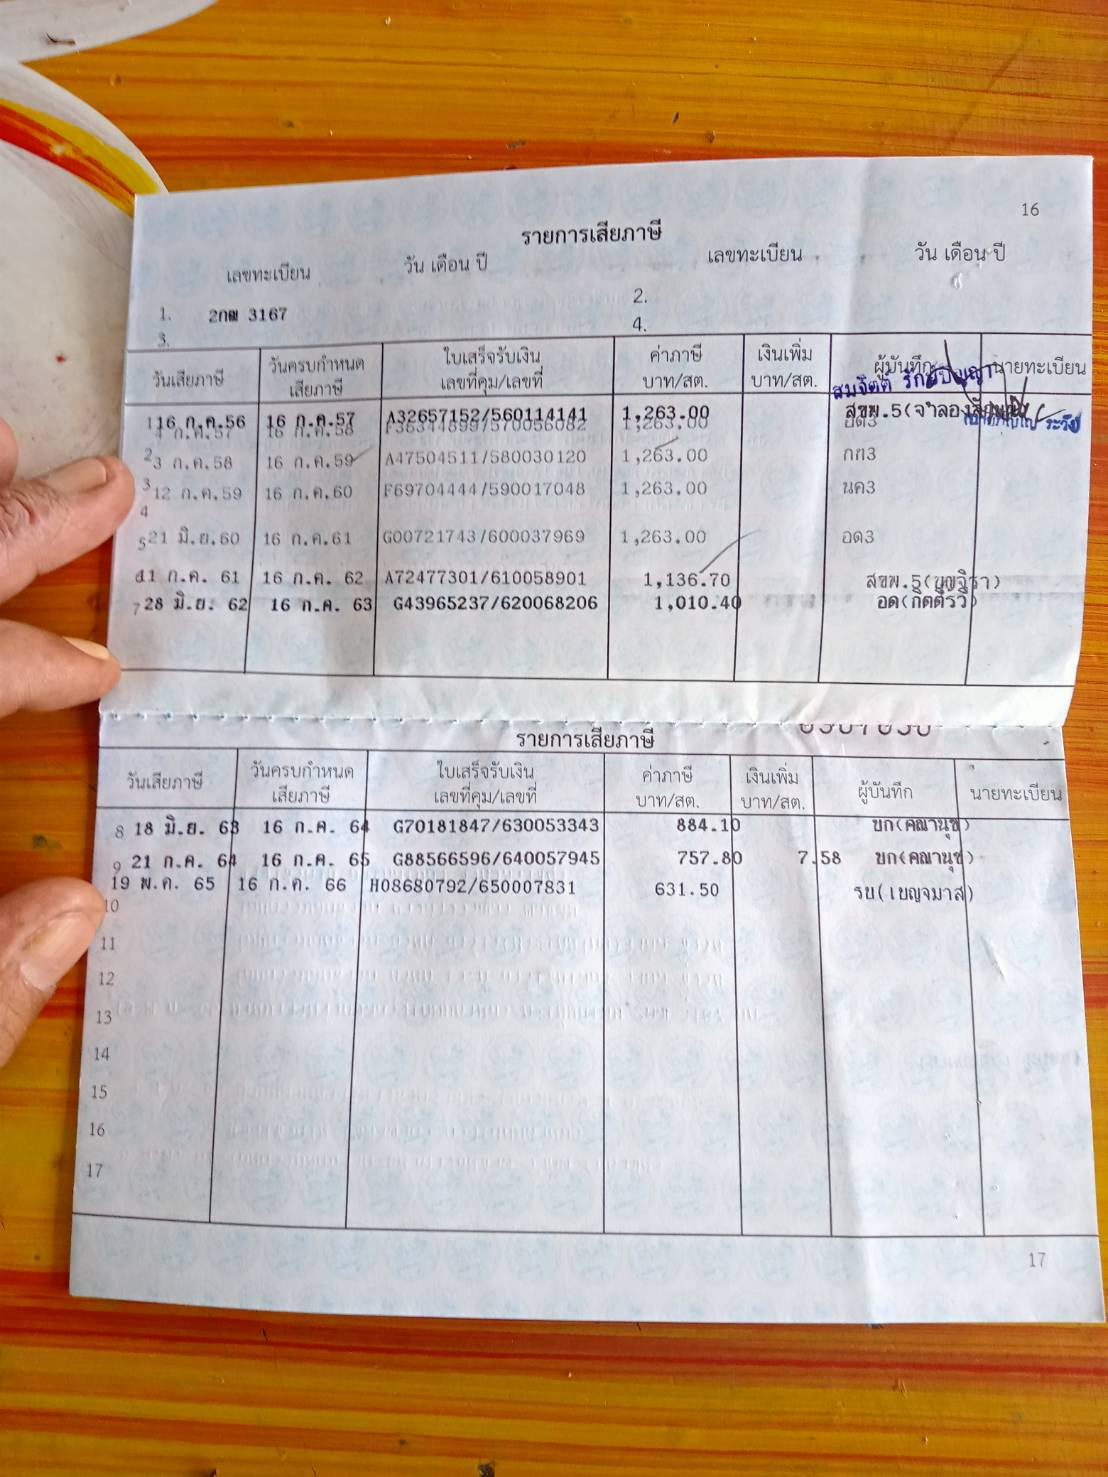 16
รายการเสียภาษี
เลขทะเบียน วัน เดือน ปี เลขทะเบียน วัน เดือน ปี
1. 2กฒ 3167 2.
3. 4.
วันเสียภาษี วันครบกำหนดเสียภาษี ใบเสร็จรับเงิน เลขที่คุม/เลขที่ ค่าภาษี บาท/สต. เงินเพิ่ม บาท/สต. ผู้บันทึก นายทะเบียน
สมจิตต์
1 16 ก.ค.56 16 ก.ค.57 A32657152/560114141 1,263.00 สขพ.5
4 ก.ค.57 16 ก.ค.58 1,263.00 อด3
2 3 ก.ค.58 16 ก.ค.59 A47504511/580030120 1,263.00 กก3
3 12 ก.ค.59 16 ก.ค.60 F69704444/590017048 1,263.00 นค3
4
5 21 มิ.ย.60 16 ก.ค.61 G00721743/600037969 1,263.00 อด3
11 ก.ค. 61 16 ก.ค. 62 A72477301/610058901 1,136.70 สขพ.5(บุญจิรา)
7 28 มิ.ย. 62 16 ก.ค. 63 G43965237/620068206 1,010.40 อด(กิตติรวี)
รายการเสียภาษี
วันเสียภาษี วันครบกำหนดเสียภาษี ใบเสร็จรับเงิน เลขที่คุม/เลขที่ ค่าภาษี บาท/สต. เงินเพิ่ม บาท/สต. ผู้บันทึก นายทะเบียน
8 18 มิ.ย. 63 16 ก.ค. 64 G70181847/630053343 884.10 ขก(คณานุช)
9 21 ก.ค. 64 16 ก.ค. 65 G88566596/640057945 757.80 7.58 ขก(คณานุช)
19 พ.ค. 65 16 ก.ค. 66 H08680792/650007831 631.50 รบ(เบญจมาส)
10
11
12
13
14
15
16
17
17